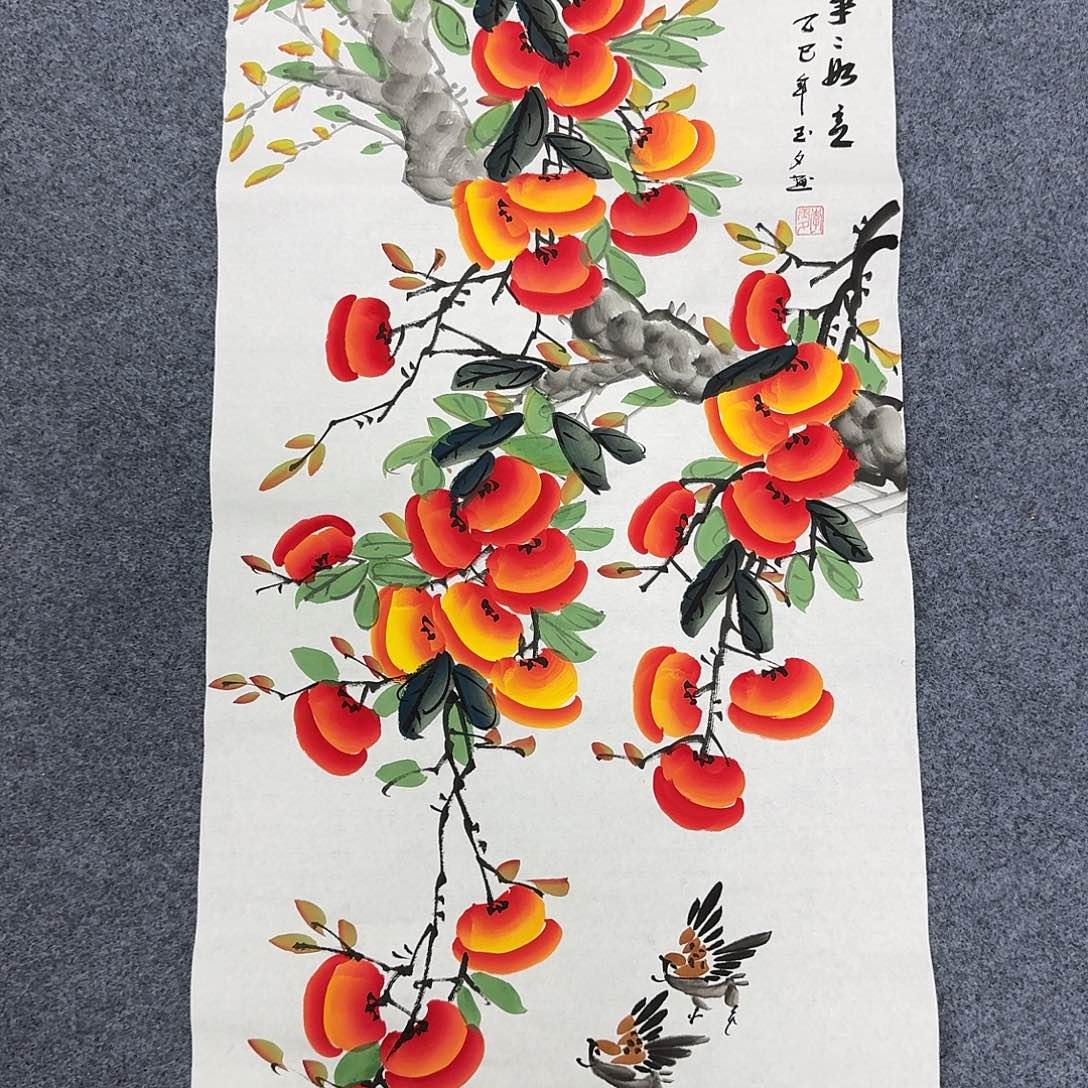 事〻如意
乙巳年玉夕画